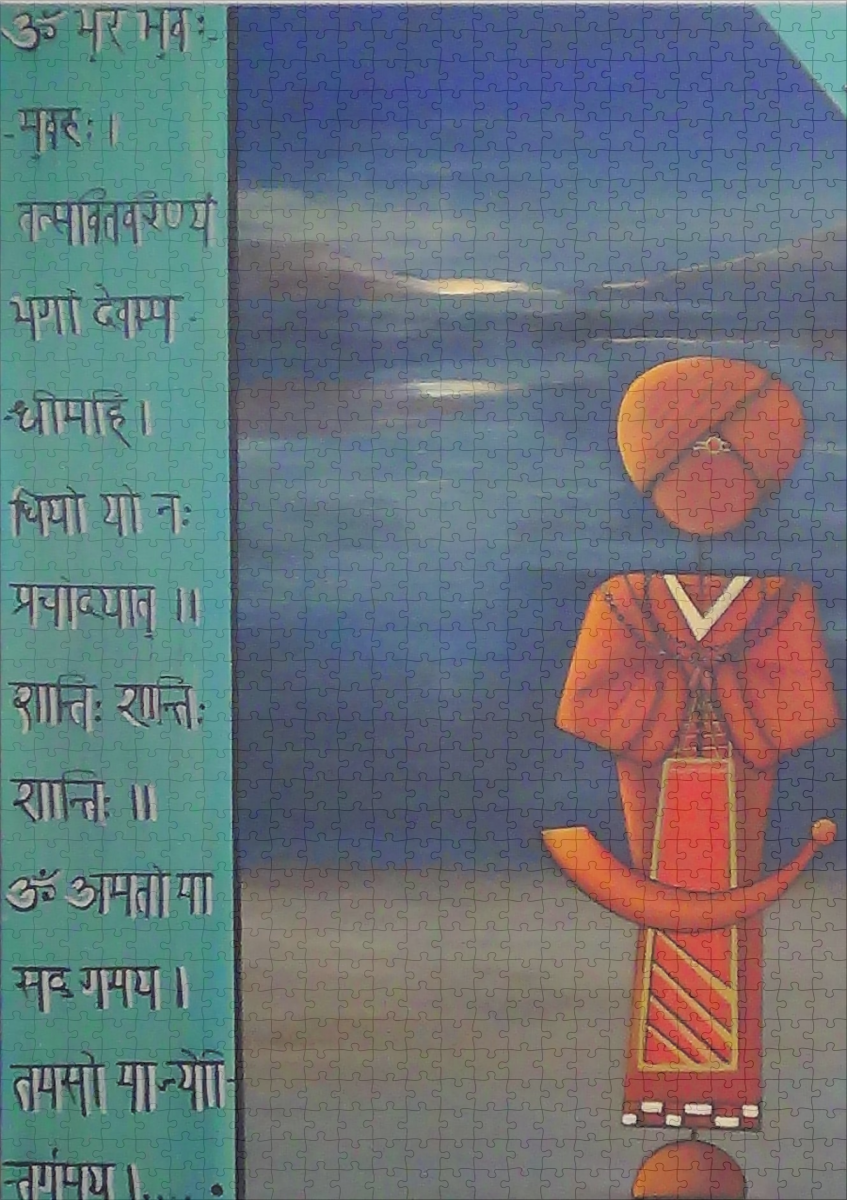 ॐ भुर भुवः-
-भुवहः।
तत्सवितवरिण्यं
भर्गा देवाम्प-
-धीमहि।
धियो यो नः
प्रचोदयात् ॥
शान्तिः शान्तिः
शान्तिः ॥
ॐ आमतो मा
सद गमय।
तमसो मा ज्योति-
र्तगंमय।.....